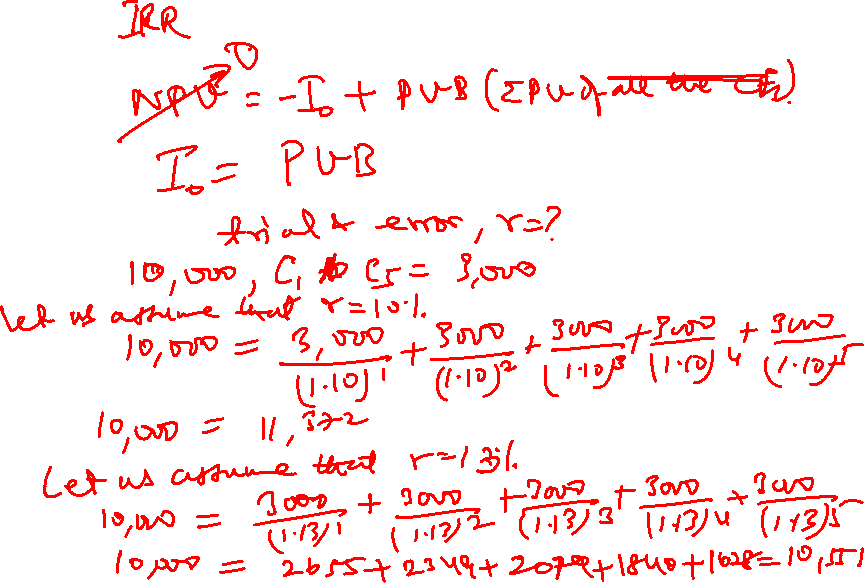 IRR
NPV 0 = -I₀ + PVB (ΣPV of all the CFs)
I₀ = PVB
trial & error, r=?
10,000, C₁ to C₅ = 3,000
Let us assume that r=10%
10,000 = 3,000/(1.10)¹ + 3000/(1.10)² + 3000/(1.10)³ + 3000/(1.10)⁴ + 3000/(1.10)⁵
10,000 = 11,372
Let us assume that r=13%
10,000 = 3000/(1.13)¹ + 3000/(1.13)² + 3000/(1.13)³ + 3000/(1.13)⁴ + 3000/(1.13)⁵
10,000 = 2655 + 2349 + 2079 + 1840 + 1628 = 10,551